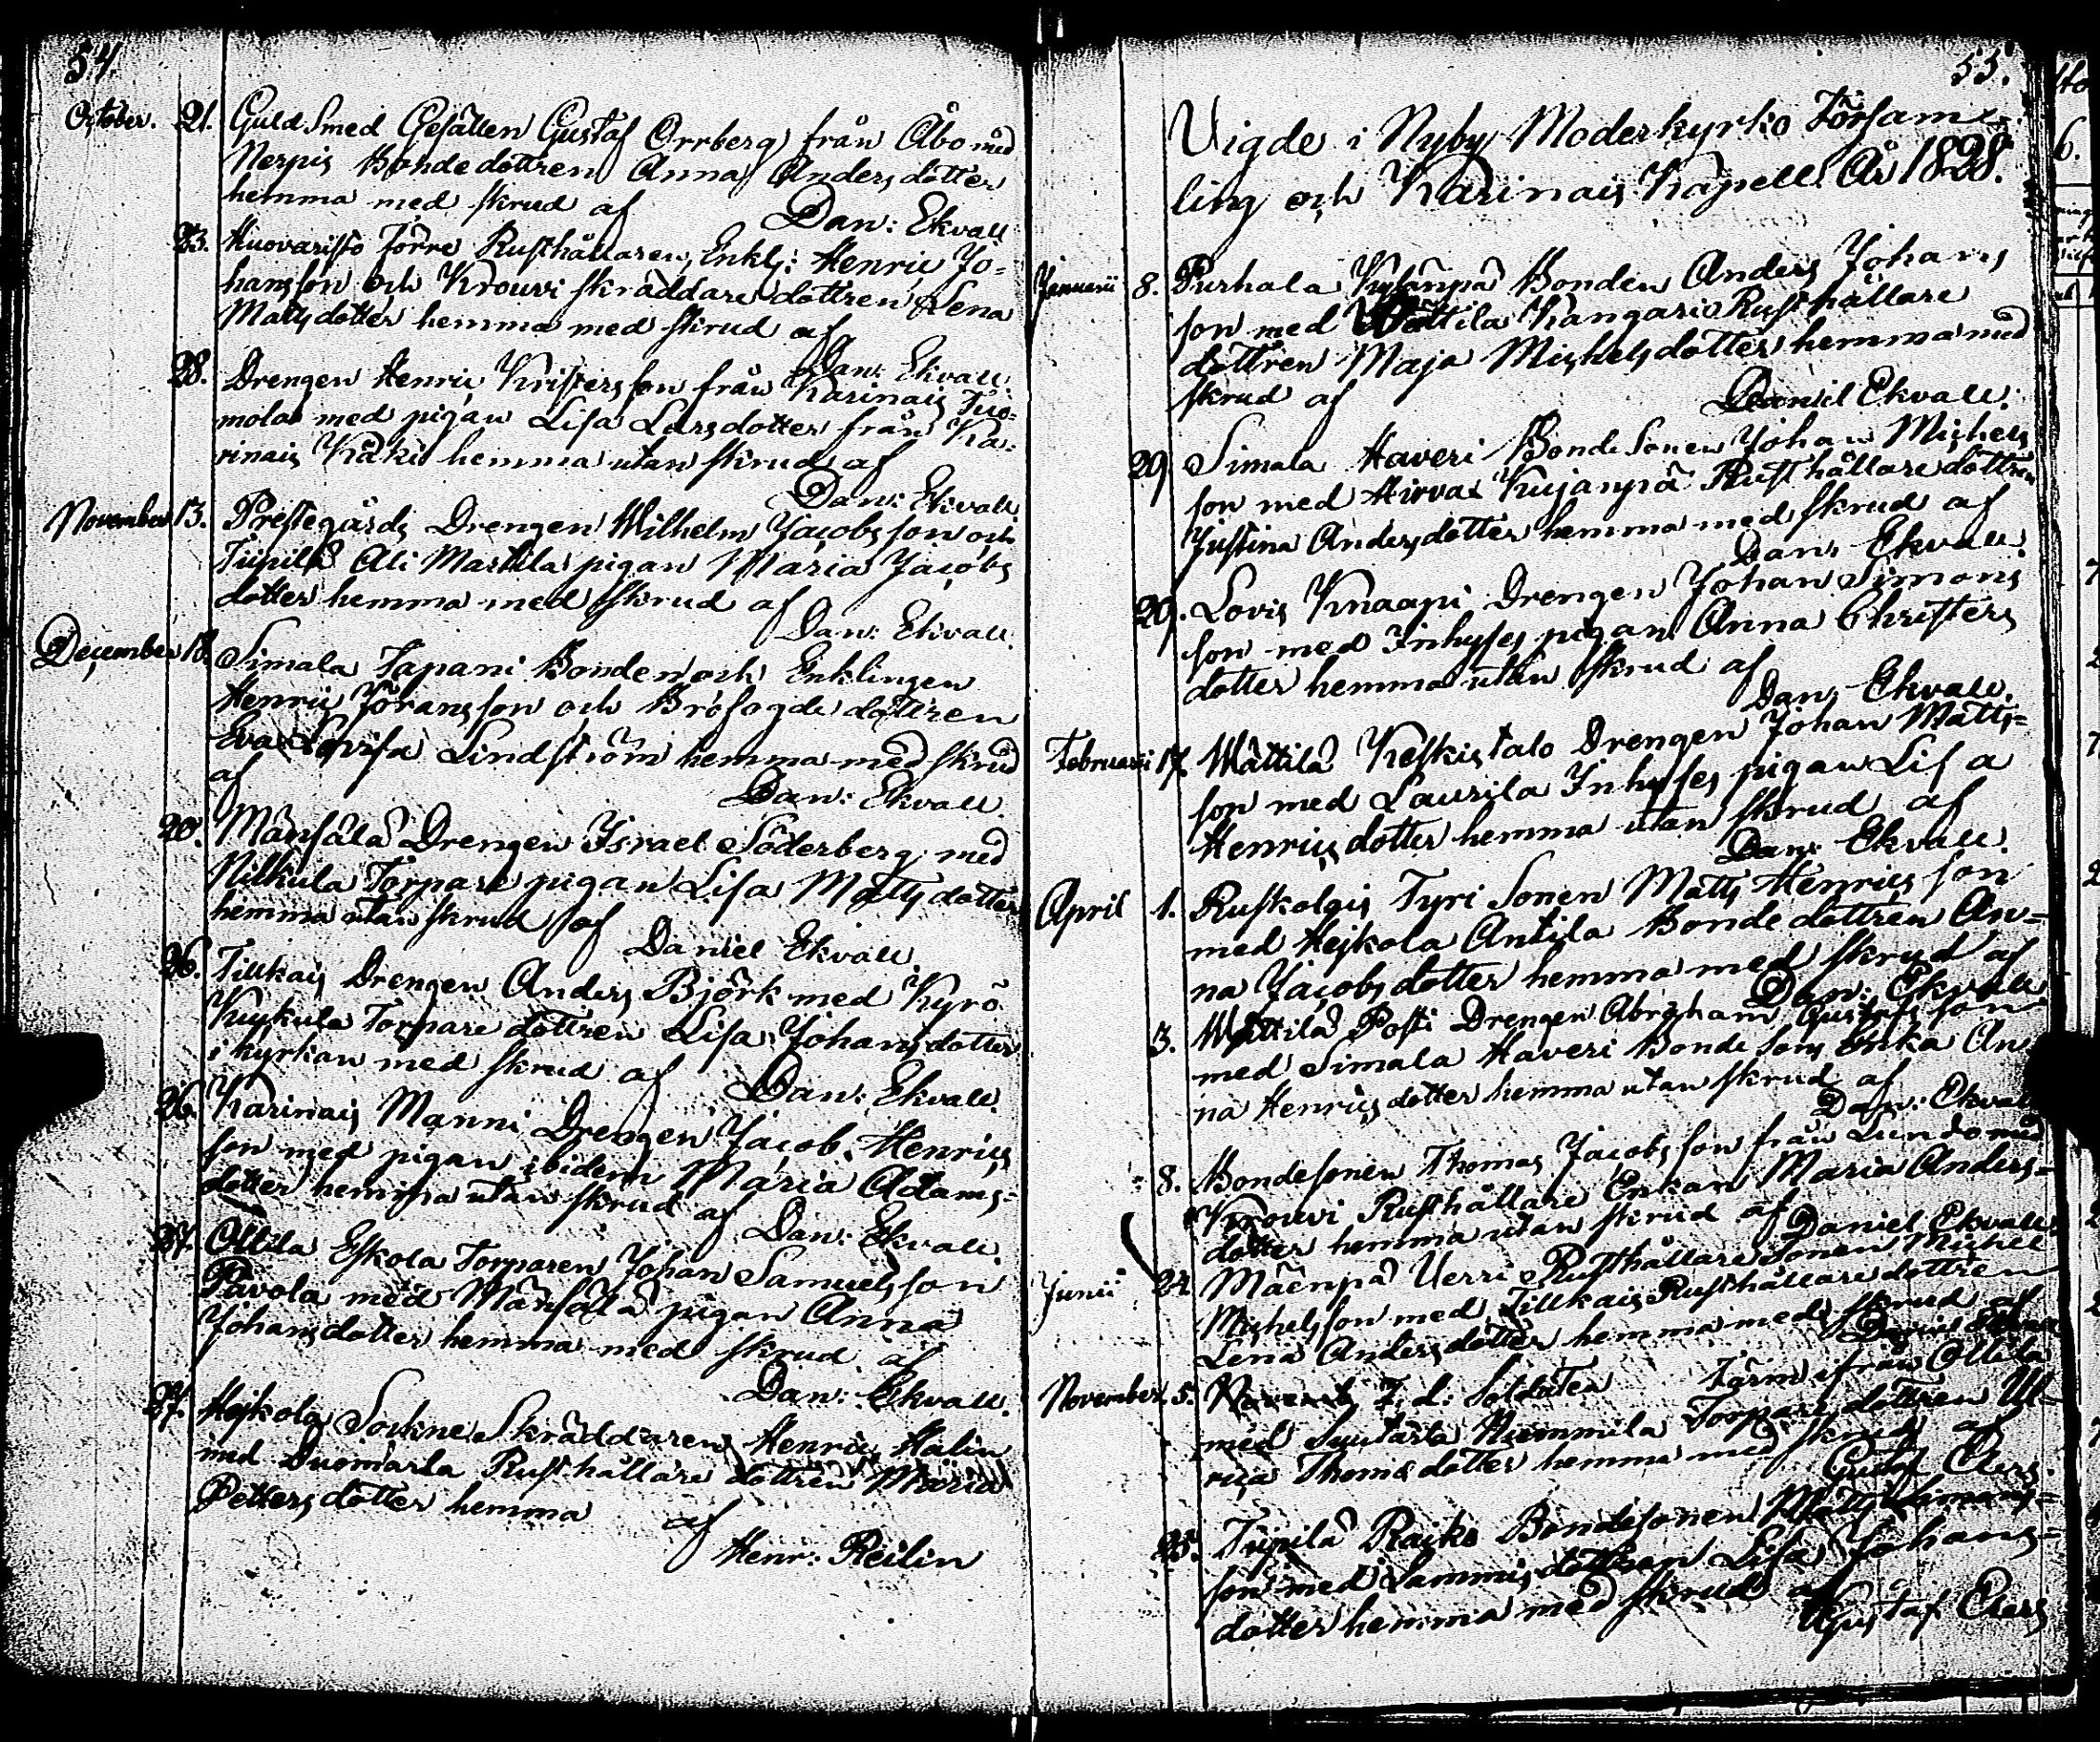 54.
October. 21. Guld Smed Gesällen Gustaf Orrberg från Åbo med
Nerpis Bonde dottren Anna Anders dotter
hemma med skrud af
Dan: Ekvall
23. Huovaristo Törre Rusthållaren, Enkl: Henric Jo=
hansson och Krouvi skräddare dottren Lena
Matts dotter hemma med skrud af
Dan: Ekvall.
28. Drengen Henric Kristersson från Karinais Tuo=
mola med pigan Lisa Larsdotter från Ka=
rinais Käki hemma utan skrud af
Dan: Ekvall
November 13. Prestegårds Drengen Wilhelm Jacobsson och
Tiipilä Ali Martila pigan Maria Jacobs
dotter hemma med skrud af
Dan: Ekvall.
December 18. Simala Tapani Bonden och Enklingen
Henric Jöransson och Brofogde dottren
Eva Lovisa Lindström hemma med skrud
af
Dan: Ekvall.
20. Mänsälä Drengen Israel Söderberg med
Torpare pigan Lisa Matts dotter
hemma utan skrud af
Daniel Ekvall.
26. Tillkais Drengen Anders Björk med Kyrö
Torpare dottren Lisa Johans dotter
i kyrkan med skrud af
Dan: Ekvall.
26. Karinais Manni Drengen Jacob Henrics
son med pigan ibidem Maria Adams=
dotter hemma utan skrud af
Dan: Ekvall.
27. Ollila Eskola Torparen Johan Samuelsson
Pavola med Mänsälä pigan Anna
Johansdotter hemma med skrud af
Dan: Ekvall.
27. Hejkola Sockne Skräddaren Henric Malin
med Duomarla Rusthållare dottren Maria
Petters dotter hemma
af
Henr: Reilin
55.
Vigde i Nyby Moderkyrko Försam=
ling och Karinais Kapell År 1828.
Januarii 8. Purhala Bonden Anders Johans
son med Mattila Kangari Rusthållare
dottren Maja Michelsdotter hemma med
skrud af
Daniel Ekvall.
29. Simala Haveri Bonde Sonen Johan Michels
son med Hirvas Kujanpä Rusthållare dottren
Justina Andersdotter hemma med skrud af
Dan: Ekvall.
29. Lovis Knaapi Drengen Johan Simons
son med Inhyses pigan Anna Christers
dotter hemma utan skrud af
Dan: Ekvall.
Februarii 17. Mattila Keskistalo Drengen Johan Matts=
son med Laurila Inhyses pigan Lisa
Henrics dotter hemma utan skrud af
Dan: Ekvall.
April 1. Ruskolais Tyri Sonen Matts Henrics son
med Hejkola Antila Bonde dottren An=
na Jacobs dotter hemma med skrud af
Dan: Ekvall
3. Mattila Posti Drengen Abraham Gustafs son
med Simala Haveri Bonde Sons Enka An
na Henrics dotter hemma utan skrud af
Dan: Ekvall
8. Bondesonen Thomas Jacobsson från Lundo med
Krouvi Rusthållare Enkan Maria Anders=
dotter hemma utan skrud af
Daniel Ekvall.
Junii 24 Mäenpä Uerri Rusthållare Sonen Michel
Michelsson med Tillkais Rusthållare dottren
Lena Anders dotter hemma med skrud af
November 5. F. d: Soldaten Färm ifrån Ollila
med Suutarla Nummila Torpare dottren Ul=
rica Thomas dotter hemma med skrud af
Gustaf
25. Tiipilä Raiko Bondesonen Matts
son med Lammis dottren Lisa Johans=
dotter hemma med skrud af
Gustaf